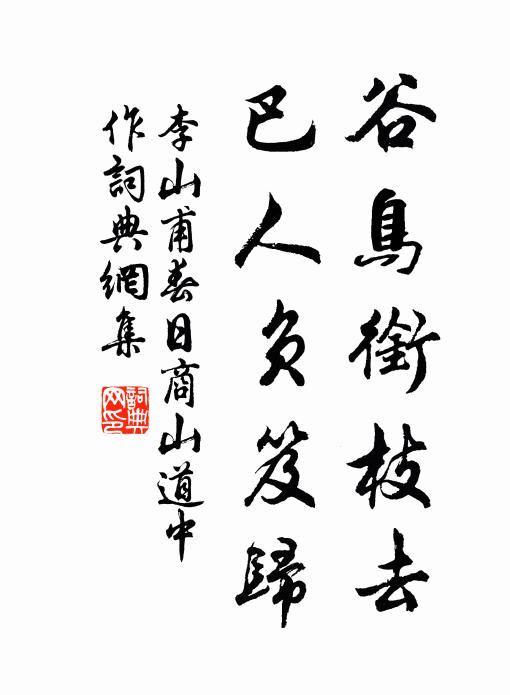 谷鳥銜枝去
巴人負笈歸
李山甫春日商山道中
作詞典網集
詞典
网印